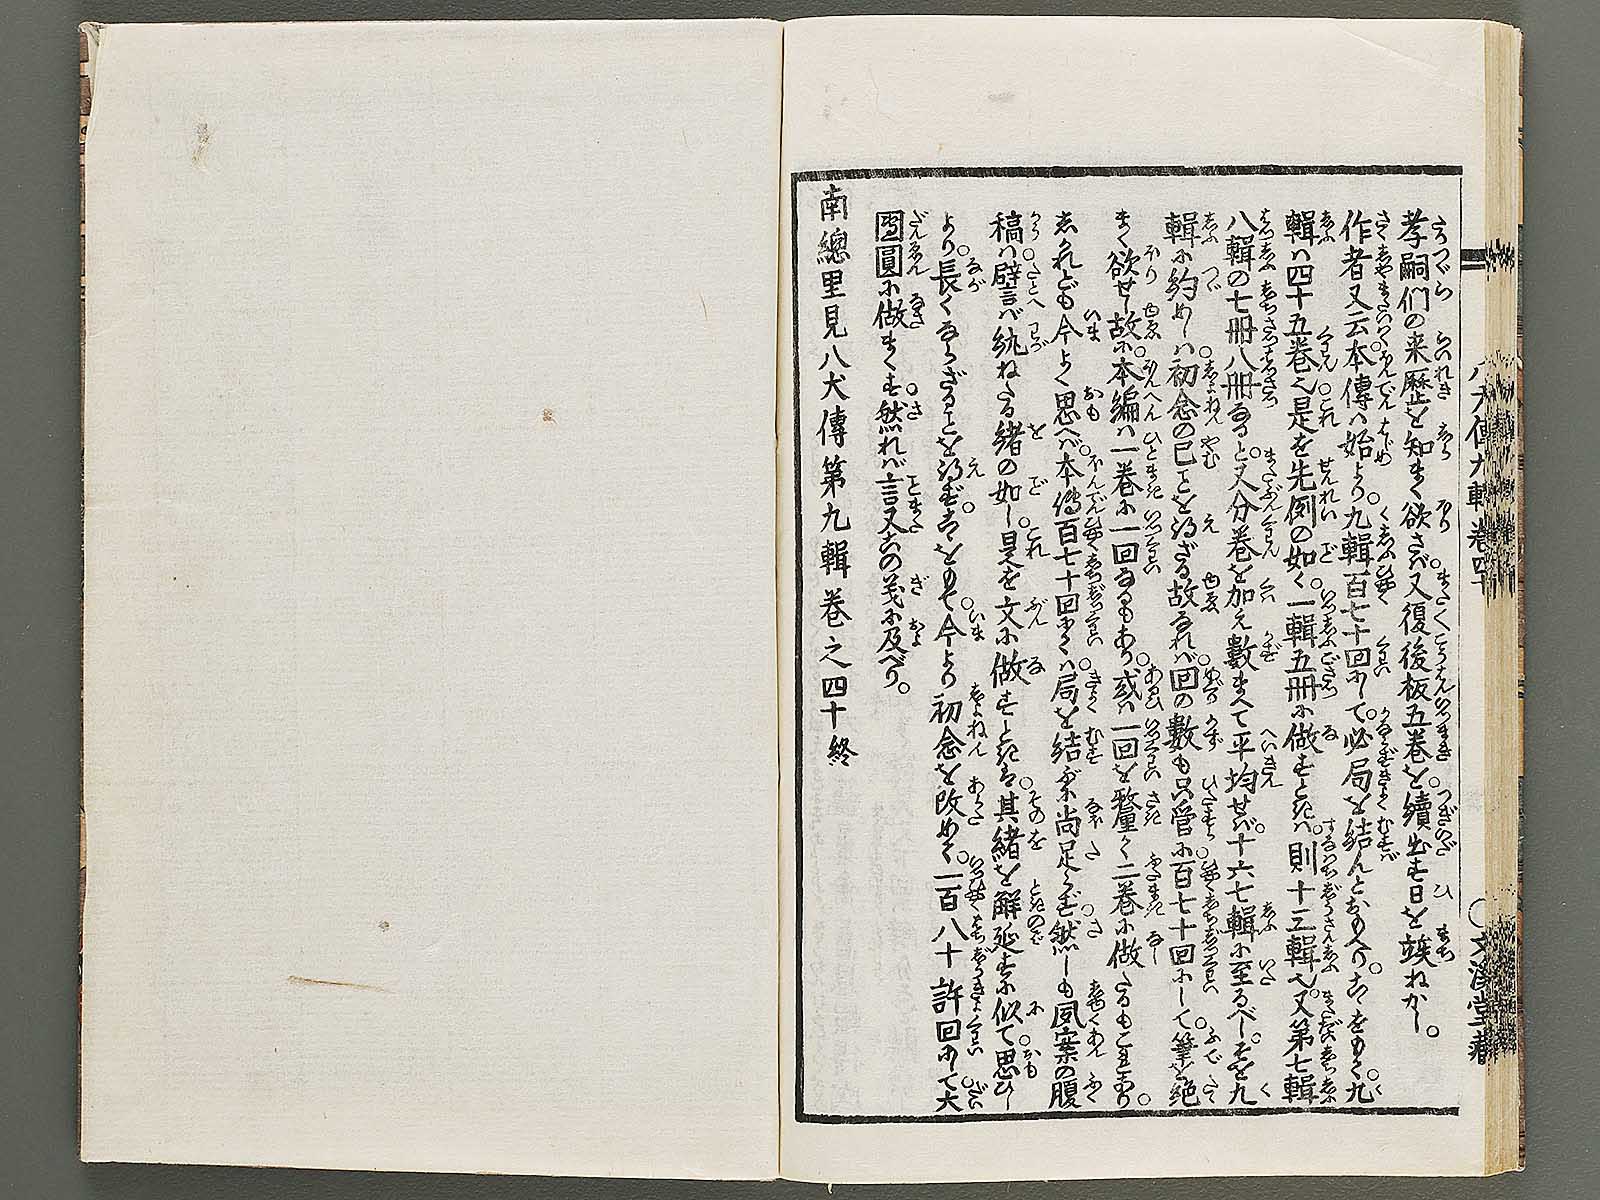 孝嗣們の来歴を知まく欲さば又復後板五巻を續出す日を竢ねかし。
作者又云本傳は始より。九輯百七十回にして。必局を結んとおもへり。こゝをもて。九
輯は四十五巻也是を先例の如く。一輯五冊に做すときは。則十三輯也。又第七輯
八輯の七冊八冊なると。又分巻を加え數まへて平均せば。十六七輯に至るべし。そを九
輯に約めしは。初念の已ことを得ざる故なれば。回の數も只管に百七十回にして。筆を絶
まく欲せし故に。本編は一巻に一回なるもあり。或は一回を釐て二巻に做たるも
あれども今よく思へば。本傳百七十回にては。局を結ぶに尚足らず。然しも夙案の腹
稿は。譬言ば紈ねたる緒の如し。是を文に做すときは。其緒を解延すに似て。思ひし
より。長くならざることを得ず。こゝをもて。今より初念を改めて。一百八十許回にして。大
團圓に做まくす。然れば言又この義に及べり。
南總里見八犬傳第九輯巻之四十終
八犬傳九輯巻四十
文溪堂藏